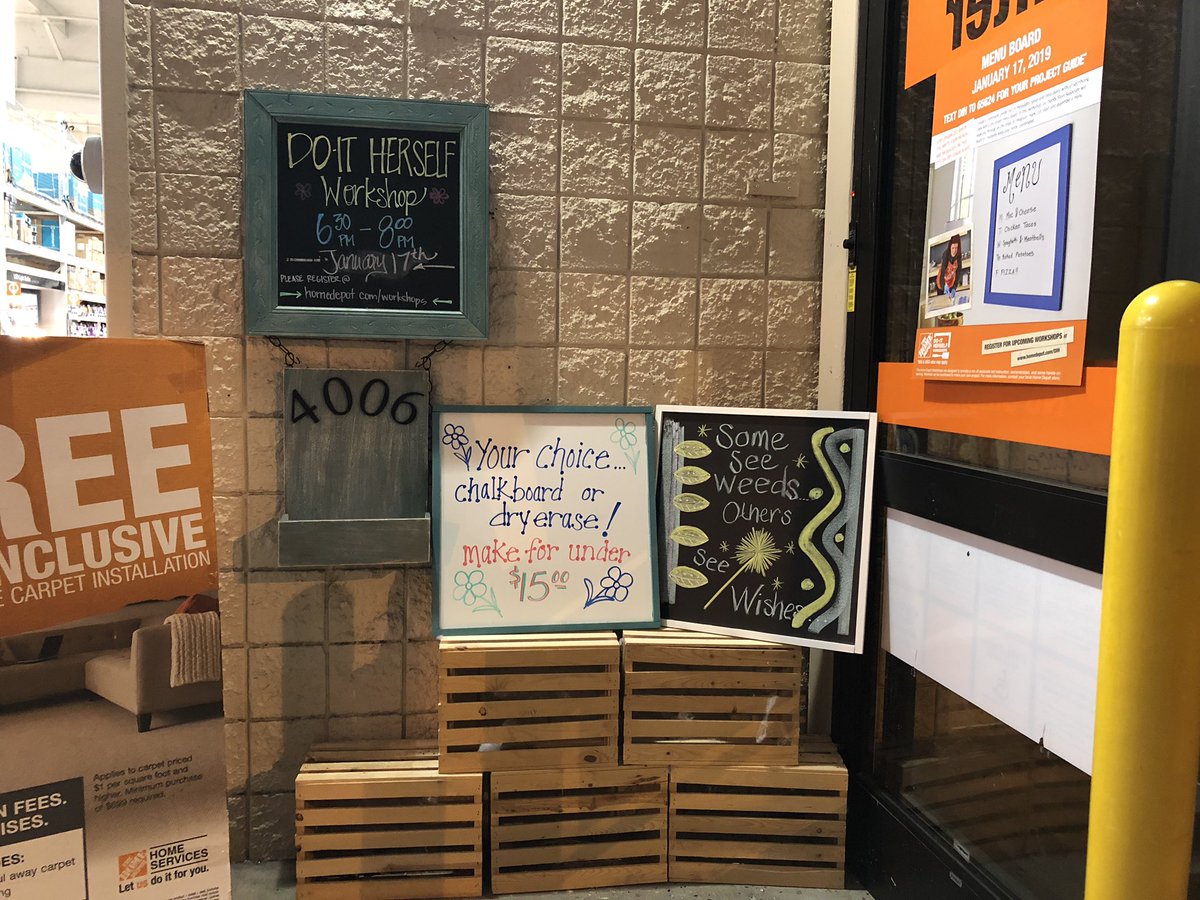 DO·IT HERSELF
Workshop
6:30 PM - 8:00 PM
January 17th
PLEASE REGISTER @
homedepot.com/workshops
4006
Your choice...
chalkboard or
dry erase!
make for under
$15.00
Some
See
Weeds...
Others
See
Wishes
MENU BOARD
JANUARY 17, 2019
TEXT DIN TO 65624 FOR YOUR PROJECT GUIDE*
MENU
M Mac & Cheese
T Chicken Tacos
W Spaghetti & Meatballs
Th Baked Potatoes
F PIZZA!!
DO·IT
HERSELF
REGISTER FOR UPCOMING WORKSHOPS at
www.homedepot.com/DIH
REE
NCLUSIVE
E CARPET INSTALLATION
Applies to carpet priced
$1 per square foot and
higher. Minimum purchase
of $699 required.
N FEES.
ISES.
DES:
ul away carpet
ng
HOME
SERVICES
Let us do it for you.